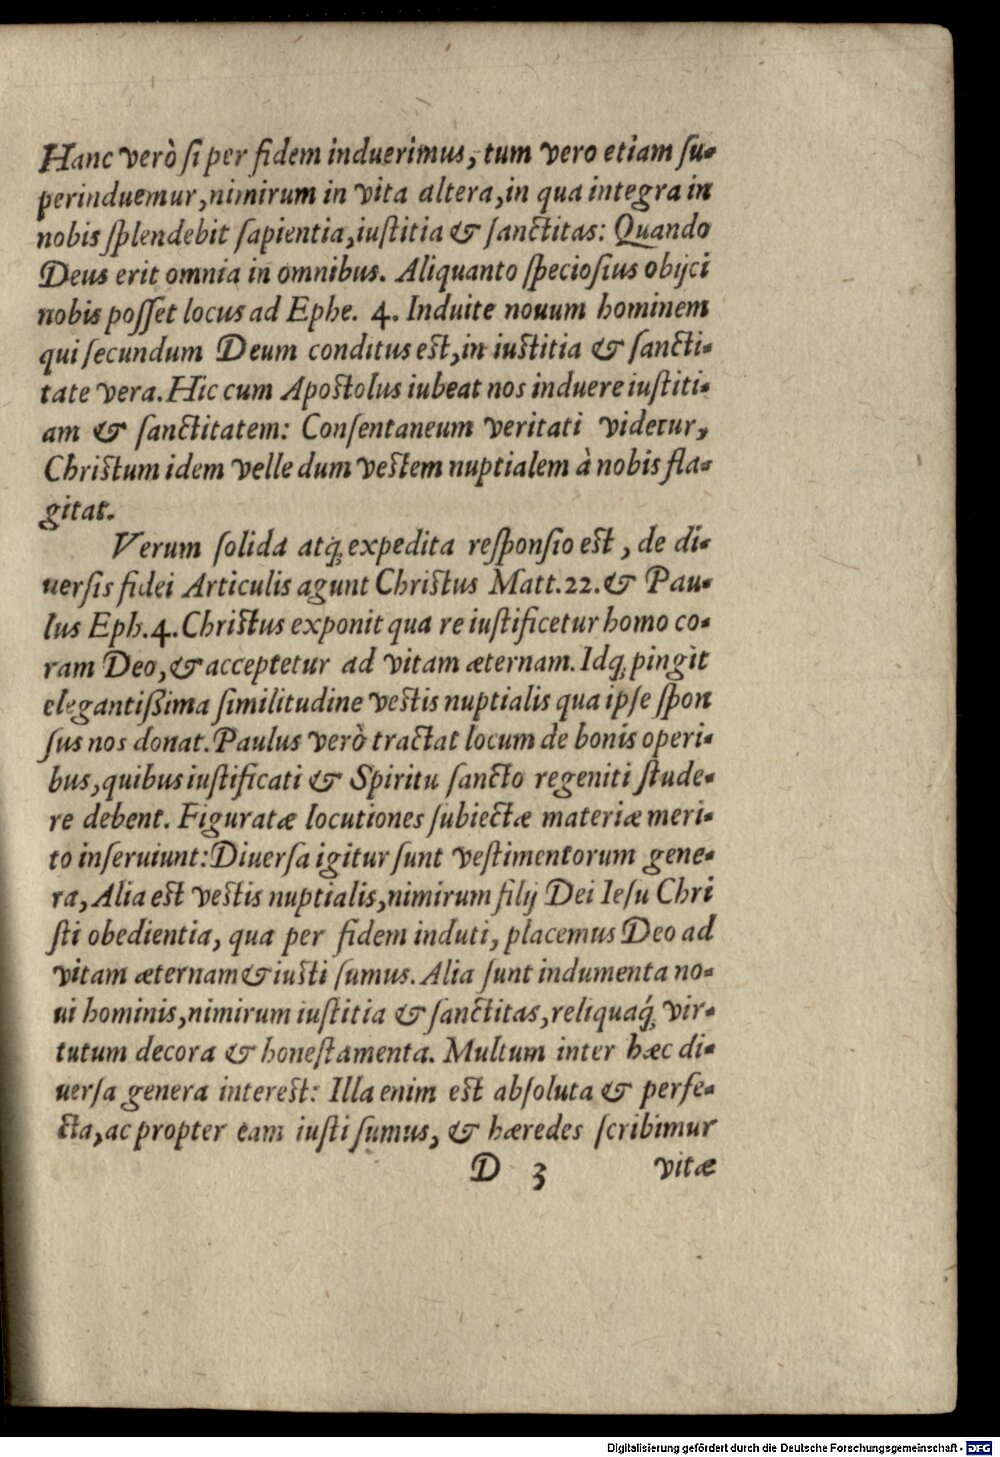 Hanc verò ſi per fidem induerimus, tum vero etiam ſu-
perinduemur, nimirum in vita altera, in qua integra in
nobis ſplendebit ſapientia, iuſtitia & ſanctitas: Quando
Deus erit omnia in omnibus. Aliquanto ſpecioſius obijci
nobis poſſet locus ad Ephe. 4. Induite nouum hominem
qui ſecundum Deum conditus eſt, in iuſtitia & ſancti-
tate vera. Hic cum Apoſtolus iubeat nos induere iuſtiti-
am & ſanctitatem: Conſentaneum veritati videtur,
Chriſtum idem velle dum veſtem nuptialem à nobis fla-
gitat.
Verum ſolida atq; expedita reſponſio eſt, de di-
uerſis fidei Articulis agunt Chriſtus Matt. 22. & Pau-
lus Eph. 4. Chriſtus exponit qua re iuſtificetur homo co-
ram Deo, & acceptetur ad vitam æternam. Idq; pingit
elegantißima ſimilitudine veſtis nuptialis qua ipſe ſpon
ſus nos donat. Paulus verò tractat locum de bonis operi-
bus, quibus iuſtificati & Spiritu ſancto regeniti ſtude-
re debent. Figuratæ locutiones ſubiectæ materiæ meri-
to inſeruiunt: Diuerſa igitur ſunt veſtimentorum gene-
ra, Alia eſt veſtis nuptialis, nimirum filij Dei Ieſu Chri
ſti obedientia, qua per fidem induti, placemus Deo ad
vitam æternam & iuſti ſumus. Alia ſunt indumenta no-
ui hominis, nimirum iuſtitia & ſanctitas, reliquaq́; vir-
tutum decora & honeſtamenta. Multum inter hæc di-
uerſa genera intereſt: Illa enim eſt abſoluta & perfe-
cta, ac propter eam iuſti ſumus, & hæredes ſcribimur
D 3 vitæ
Digitalisierung gefördert durch die Deutsche Forschungsgemeinschaft - DFG